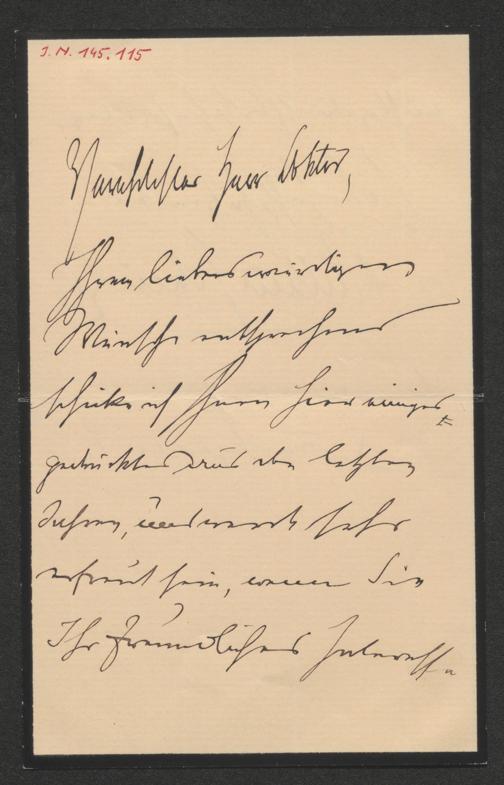 J. N. 145.115
Verehrtester Herr Doktor,
Ihrem liebenswürdigen
Wunsche entsprechend
schicke ich Ihnen hier einiges
gedruckte aus den letzten
Jahren, und werde sehr
erfreut sein, wenn Sie
Ihr freundliches Interesse